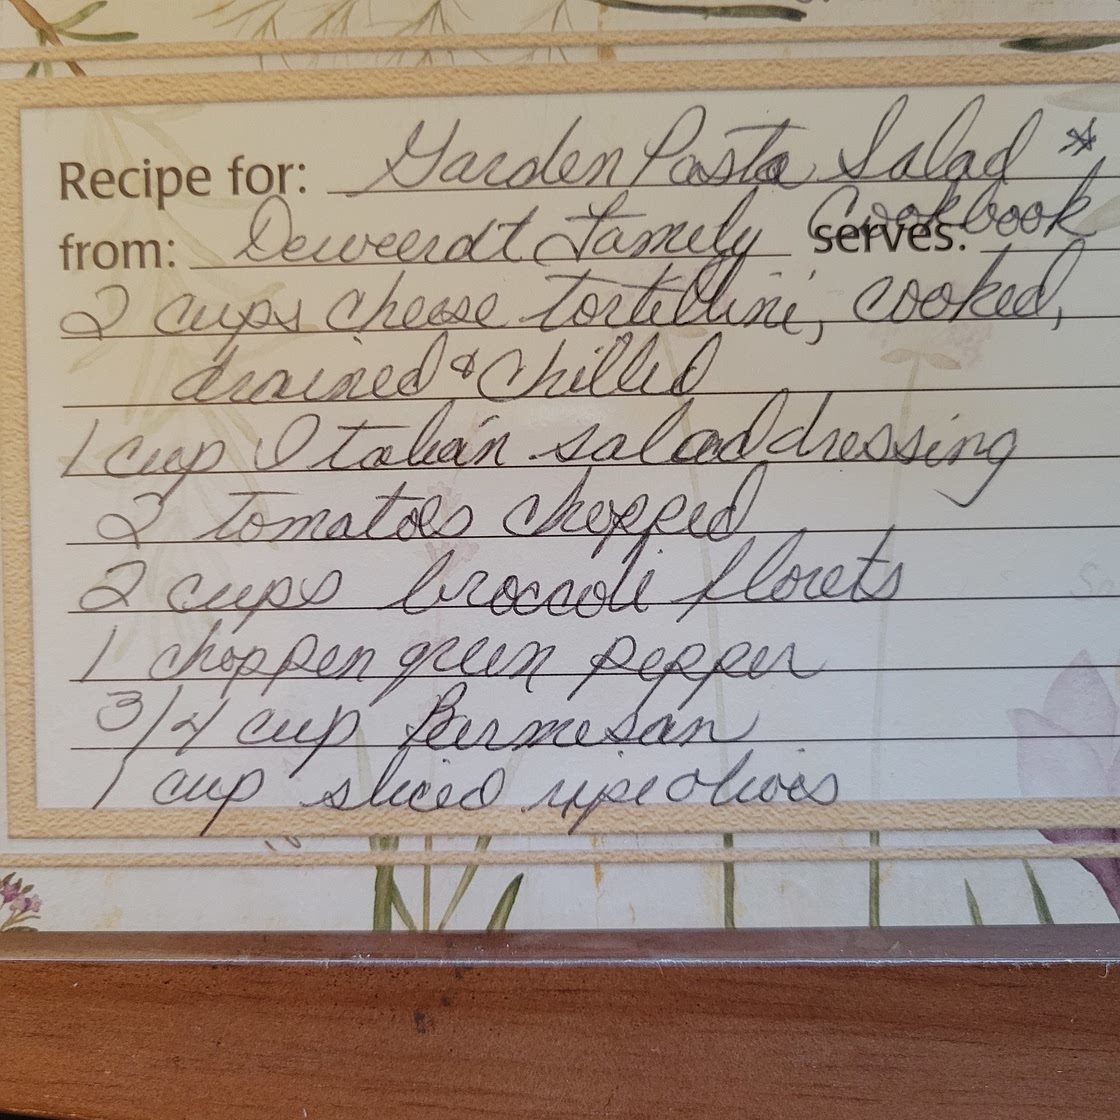 Recipe for: Garden Pasta Salad *
from: Deweerdt Family Cookbook serves:
2 cups cheese tortellini, cooked,
drained & chilled
1 cup Italian salad dressing
2 tomatoes chopped
2 cups broccoli florets
1 choppen green pepper
3/4 cup Parmesan
1 cup sliced ripe olives